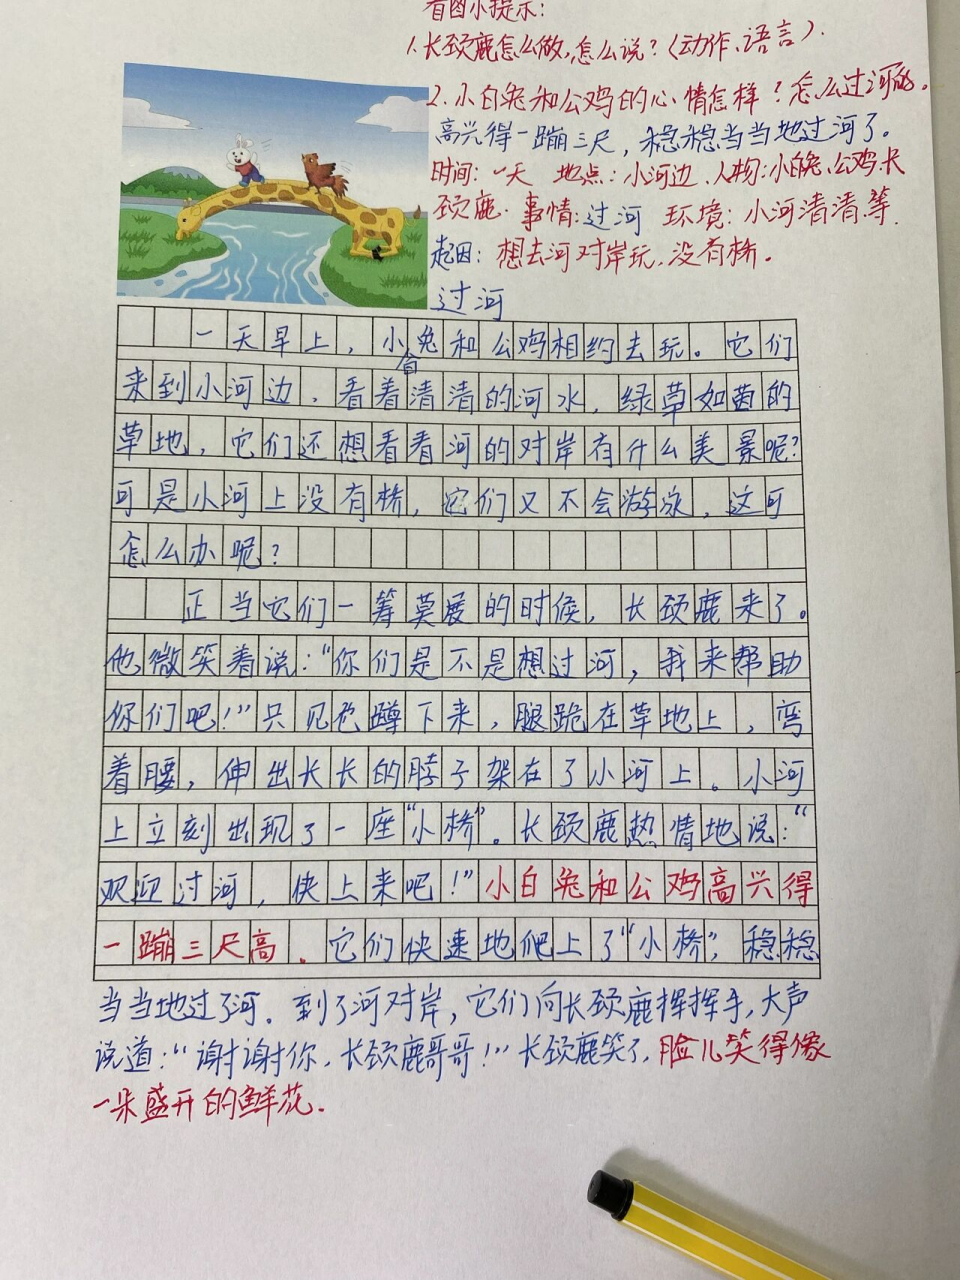 看图小提示：
1.长颈鹿怎么做,怎么说？(动作、语言).
2.小白兔和公鸡的心情怎样？怎么过河的。
高兴得一蹦三尺，稳稳当当地过河了。
时间：一天 地点：小河边、人物：小白兔、公鸡、长
颈鹿. 事情：过河 环境：小河清清等.
起因：想去河对岸玩,没有桥.
过河
一天早上，小白兔和公鸡相约去玩。它们
来到小河边，看着清清的河水，绿草如茵的
草地，它们还想看看河的对岸有什么美景呢？
可是小河上没有桥，它们又不会游泳，这可
怎么办呢？
正当它们一筹莫展的时候，长颈鹿来了。
他微笑着说：“你们是不是想过河，我来帮助
你们吧！”只见它蹲下来，腿跪在草地上，弯
着腰，伸出长长的脖子架在了小河上。小河
上立刻出现了一座“小桥”。长颈鹿热情地说：“
欢迎过河，快上来吧！”小白兔和公鸡高兴得
一蹦三尺高。它们快速地爬上了“小桥”，稳稳
当当地过了河。到了河对岸，它们向长颈鹿挥挥手，大声
说道：“谢谢你，长颈鹿哥哥！”长颈鹿笑了，脸儿笑得像
一朵盛开的鲜花.